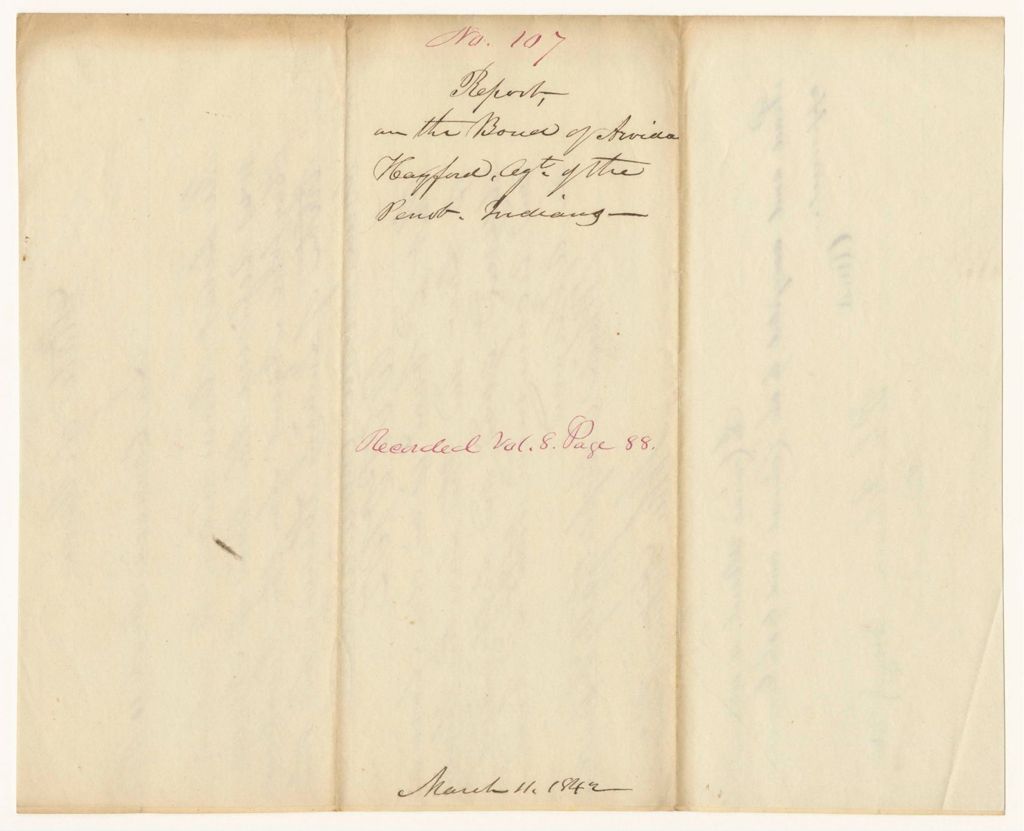 No. 107
Report,
on the Bond of Arvida
Hayford, Agt. of the
Penob. Indians—
Recorded Vol. 8. Page 88.
March 11. 1842